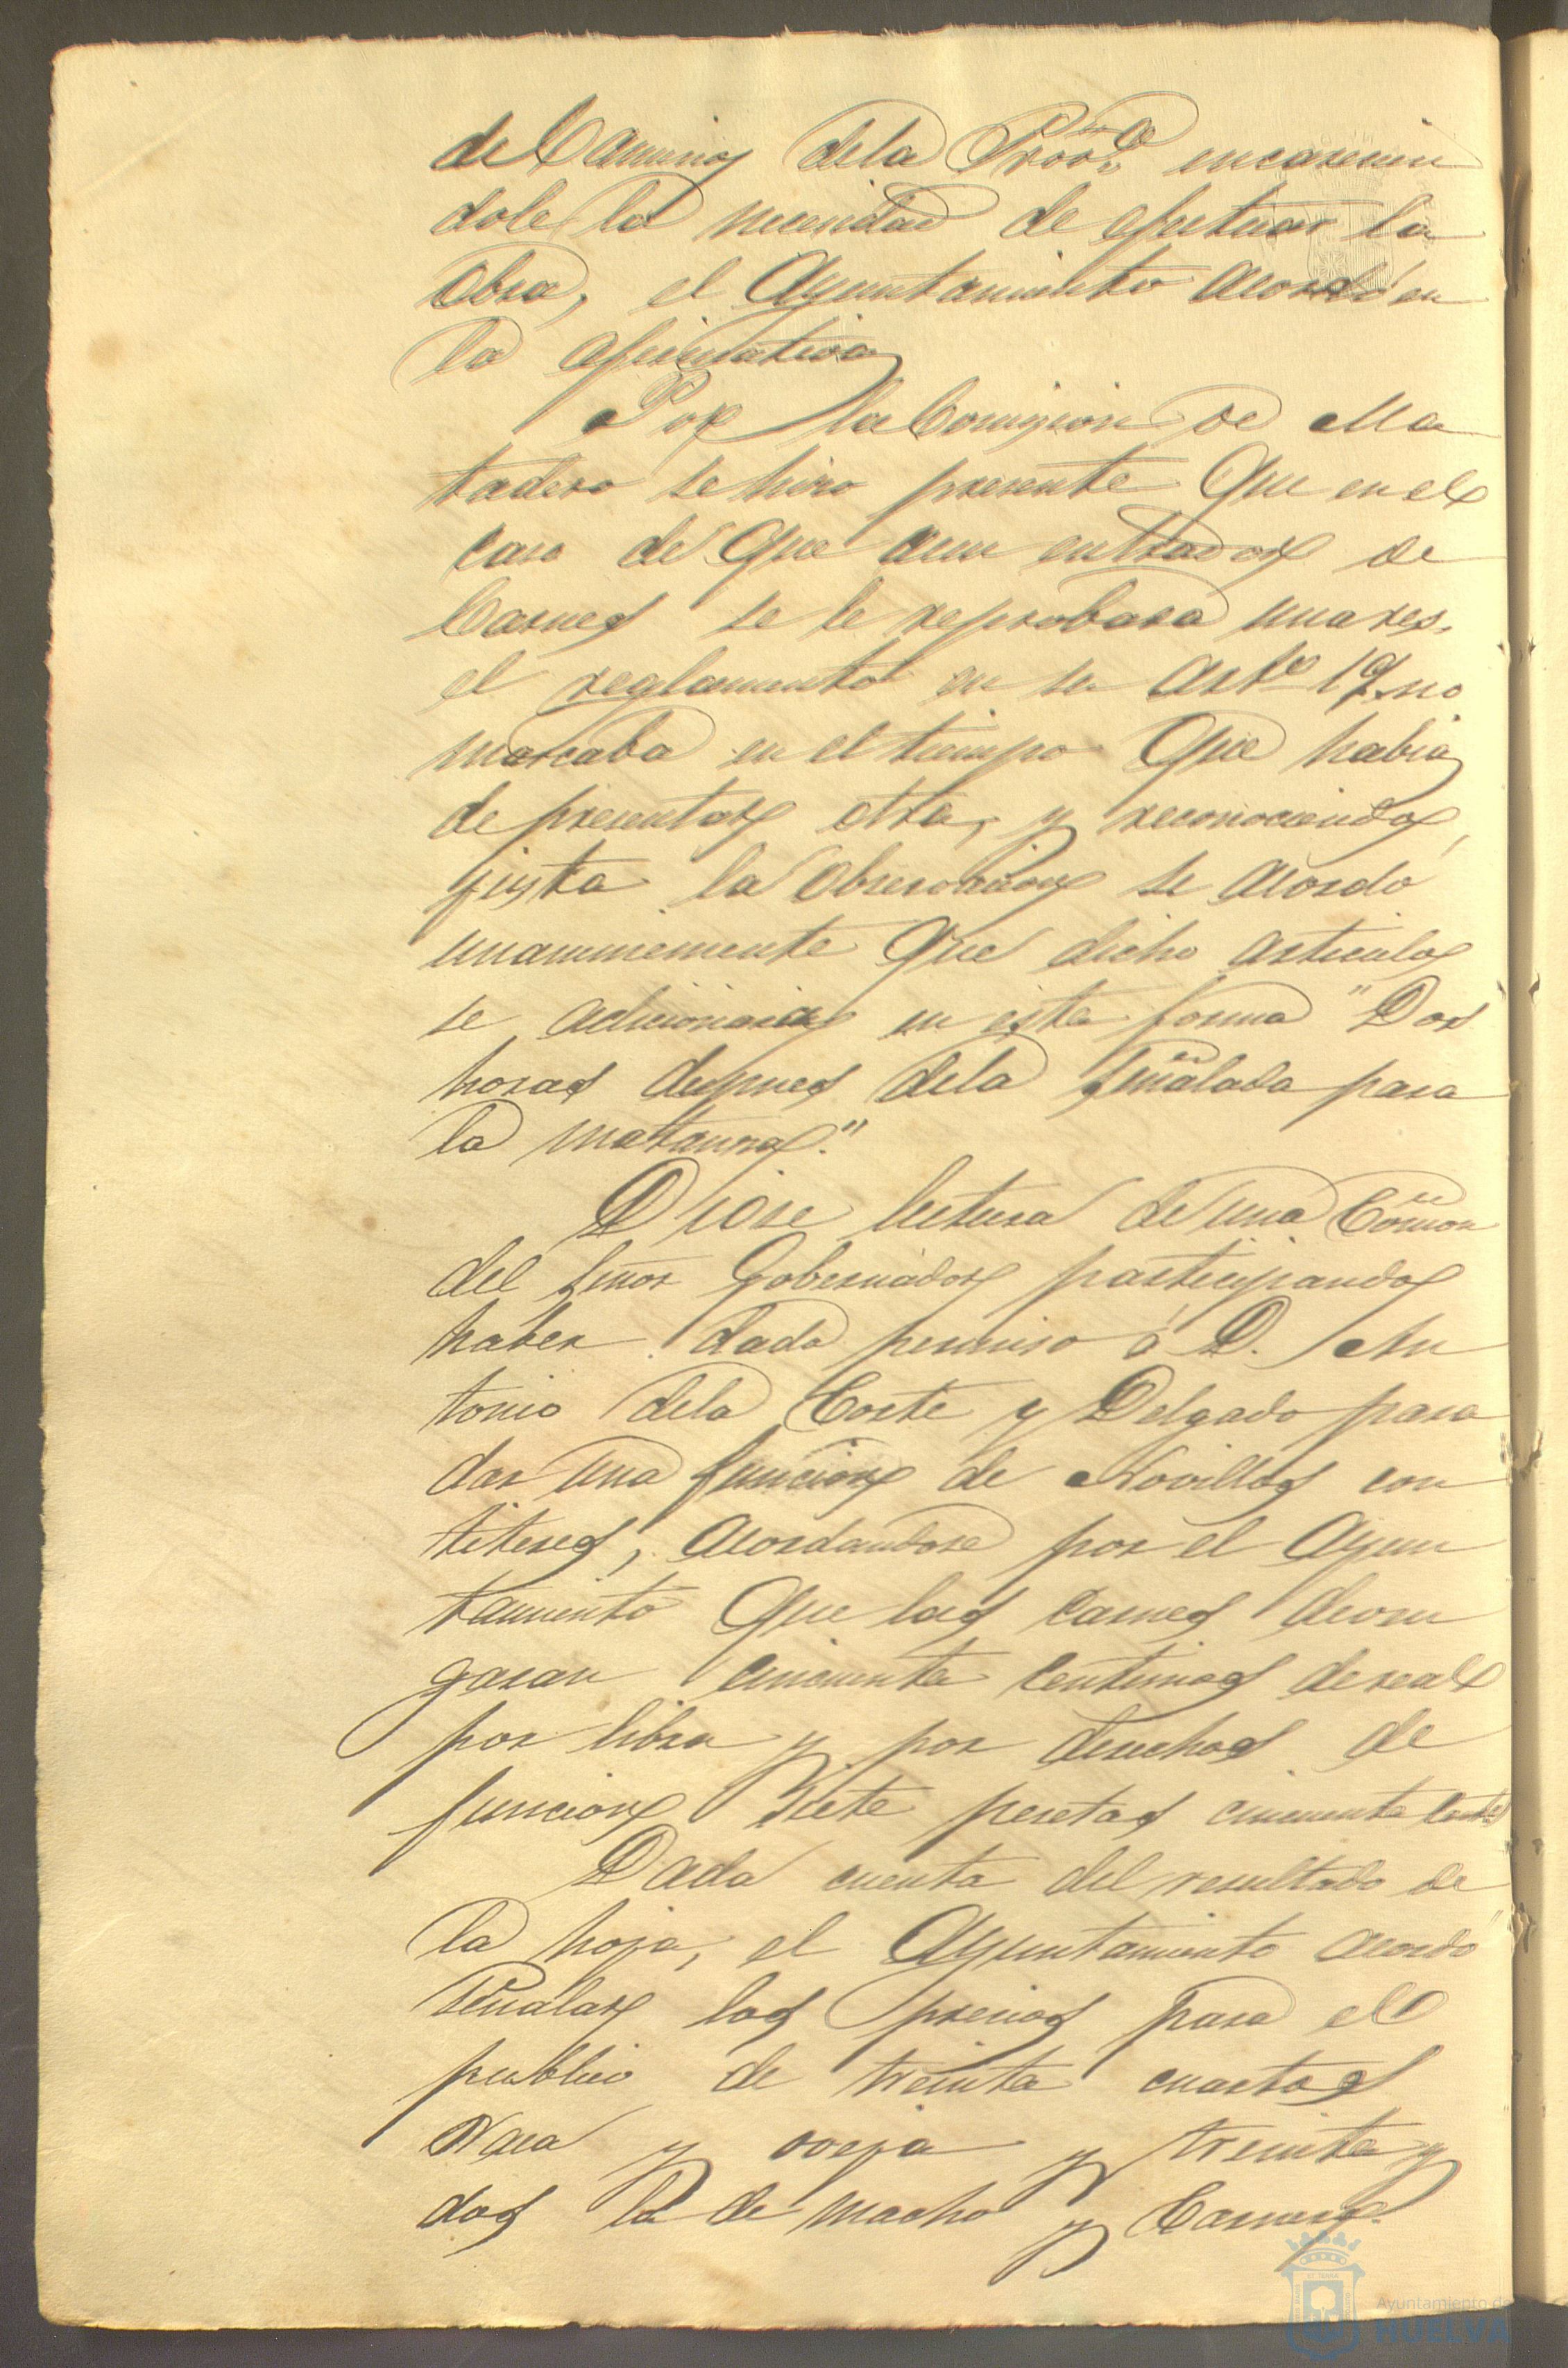 de Caminos dela Prov.ª encarecien
dole la necesidad de efectuar la
obra, el Ayuntamiento acordó en
la afirmativa
Por la Comision de Ma
tadero se hizo presente que en el
caso de que aun entrador de
Carnes se le reprobara una res,
el reglamento en su artº 19 no
marcaba en el tiempo que habia
de presentar otra, y reconociendo
justa la observacion se acordó
unanimemente que dicho articulo
se adicionara en esta forma "Dos
horas despues dela señalada para
la matanza."
Diose lectura de una Comon
del señor Gobernador participando
haber dado permiso á D. An
tonio dela Corte y Delgado para
dar una funcion de Novillos con
titeres, acordandose por el Ayun
tamiento que las carnes deven
garan cincuenta centimos de real
por libra y por derechos de
funcion siete pesetas cincuenta cents
Dada cuenta del resultado de
la hoja, el Ayuntamiento acordó
señalar los precios para el
publico de treinta cuartos
Vaca y oveja y treinta y
dos la de macho y Carnero.
Ayuntamiento de
HUELVA